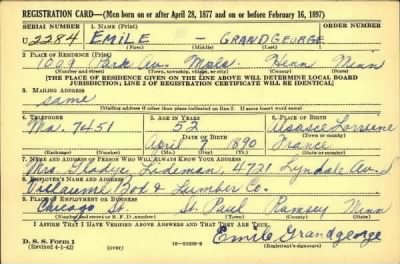 REGISTRATION CARD—(Men born on or after April 28, 1877 and on or before February 16, 1897)
SERIAL NUMBER 1. NAME (Print) ORDER NUMBER
U 2284 EMILE — GRANDGEORGE
(First) (Middle) (Last)
2. PLACE OF RESIDENCE (Print)
1009 Park Av. Mpls. Henn Minn
(Number and street) (Town, township, village, or city) (County) (State)
[THE PLACE OF RESIDENCE GIVEN ON THE LINE ABOVE WILL DETERMINE LOCAL BOARD
JURISDICTION; LINE 2 OF REGISTRATION CERTIFICATE WILL BE IDENTICAL]
3. MAILING ADDRESS
same
[Mailing address if other than place indicated on line 2. If same insert word same]
4. TELEPHONE 5. AGE IN YEARS 6. PLACE OF BIRTH
Ma. 7451 52 Alsace Lorraine
DATE OF BIRTH (Town or county)
April 7 1890 France
(Exchange) (Number) (Mo.) (Day) (Yr.) (State or country)
7. NAME AND ADDRESS OF PERSON WHO WILL ALWAYS KNOW YOUR ADDRESS
Mrs. Gladys Lideman, 4721 Lyndale Av.
8. EMPLOYER'S NAME AND ADDRESS
Villaume Box & Lumber Co.
9. PLACE OF EMPLOYMENT OR BUSINESS
Chicago St. St. Paul Ramsey Minn
(Number and street or R. F. D. number) (Town) (County) (State)
I AFFIRM THAT I HAVE VERIFIED ABOVE ANSWERS AND THAT THEY ARE TRUE.
D. S. S. Form 1
(Revised 4-1-42) (over) Emile Grandgeorge
(Registrant's signature)